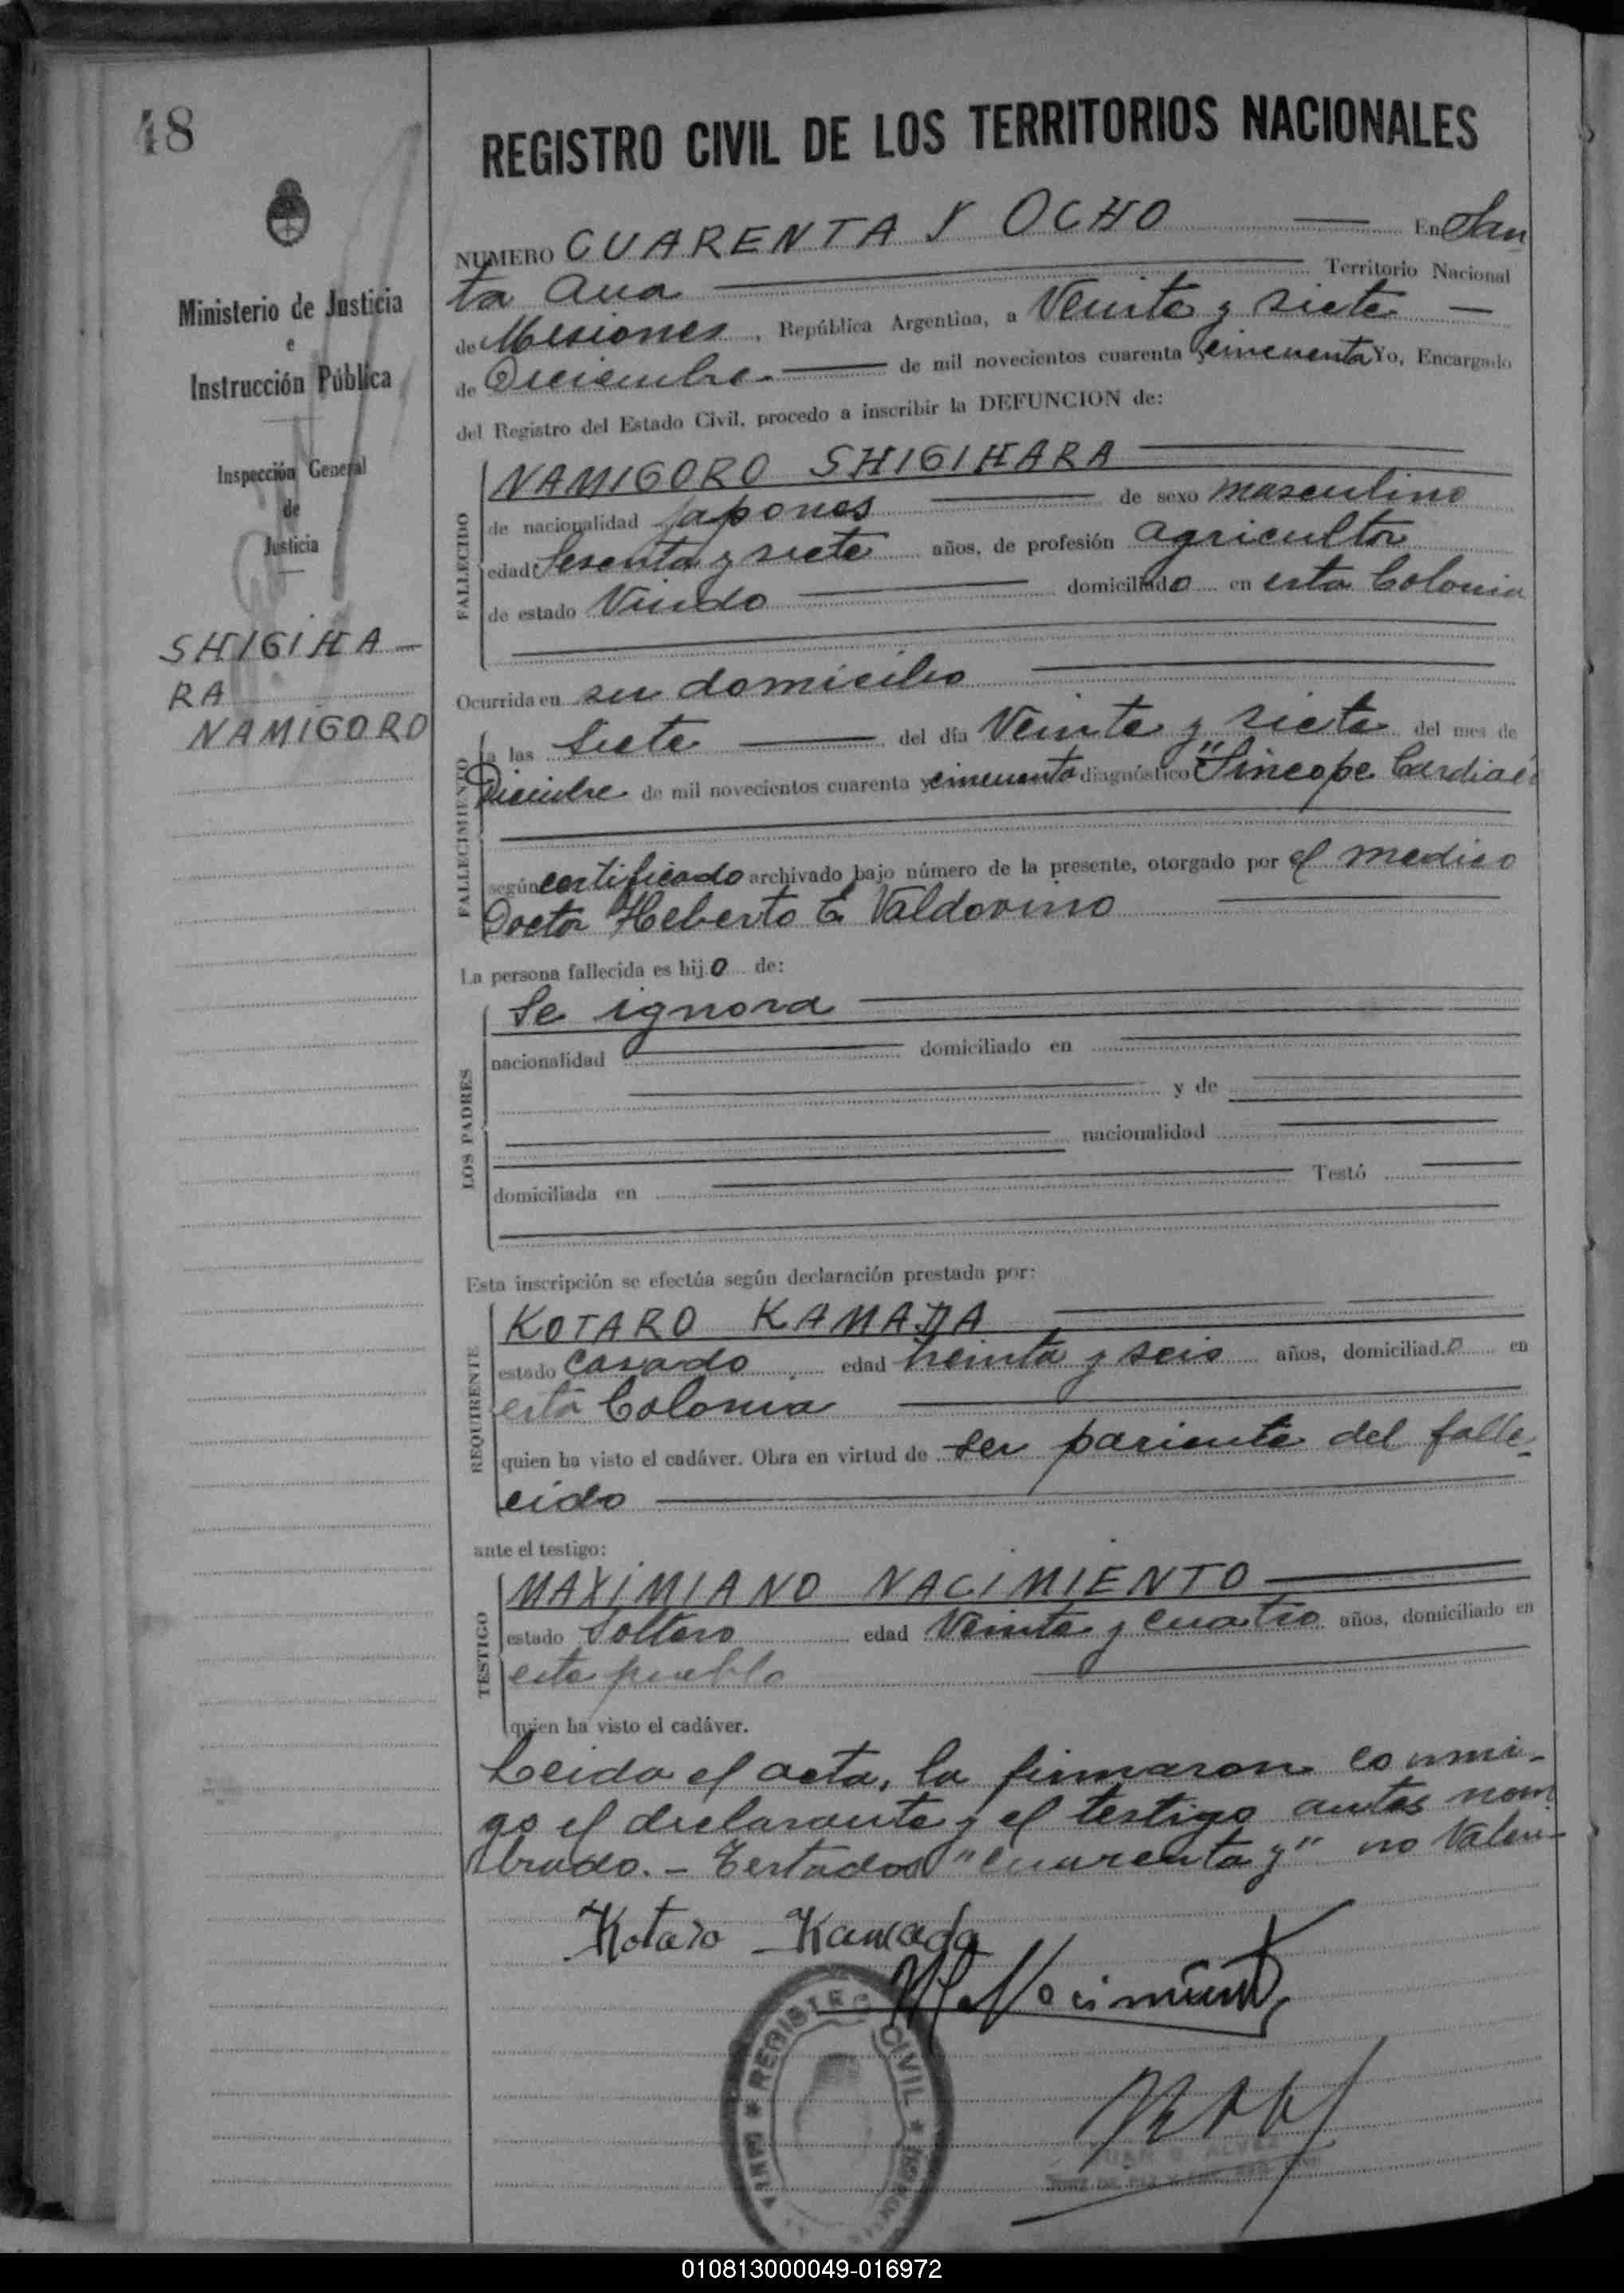 48
Ministerio de Justicia
e
Instrucción Pública
Inspección General
de
Justicia
SHIGIHA-
RA
NAMIGORO
REGISTRO CIVIL DE LOS TERRITORIOS NACIONALES
NUMERO CUARENTA Y OCHO En San
ta Ana Territorio Nacional
de Misiones, República Argentina, a Veinte y siete
de Diciembre de mil novecientos cuarenta y cincuenta Yo, Encargado
del Registro del Estado Civil, procedo a inscribir la DEFUNCION de:
FALLECIDO
NAMIGORO SHIGIHARA
de nacionalidad japones de sexo masculino
edad Sesenta y siete años, de profesión agricultor
de estado Viudo domiciliado en esta Colonia
Ocurrida en su domicilio
FALLECIMIENTO
a las Siete del día Veinte y siete del mes de
Diciembre de mil novecientos cuarenta y cincuenta diagnóstico "Sincope Cardiaco
según certificado archivado bajo número de la presente, otorgado por el medico
Doctor Heberto E. Valdovino
La persona fallecida es hijo de:
LOS PADRES
Se ignora
nacionalidad domiciliado en
y de
nacionalidad
domiciliada en Testó
Esta inscripción se efectúa según declaración prestada por:
REQUIRENTE
KOTARO KAMADA
estado Casado edad treinta y seis años, domiciliado en
esta Colonia
quien ha visto el cadáver. Obra en virtud de ser pariente del falle-
cido
ante el testigo:
TESTIGO
MAXIMIANO NACIMIENTO
estado Soltero edad Veinte y cuatro años, domiciliado en
este pueblo
quien ha visto el cadáver.
Leida el acta, la firmaron conmi-
go el declarante y el testigo antes nom
brado.- Testados "cuarenta y" no Valen-
Kotaro Kamada
M. Nacimiento
REGISTRO CIVIL
SANTA ANA
JUEZ DE PAZ
010813000049-016972